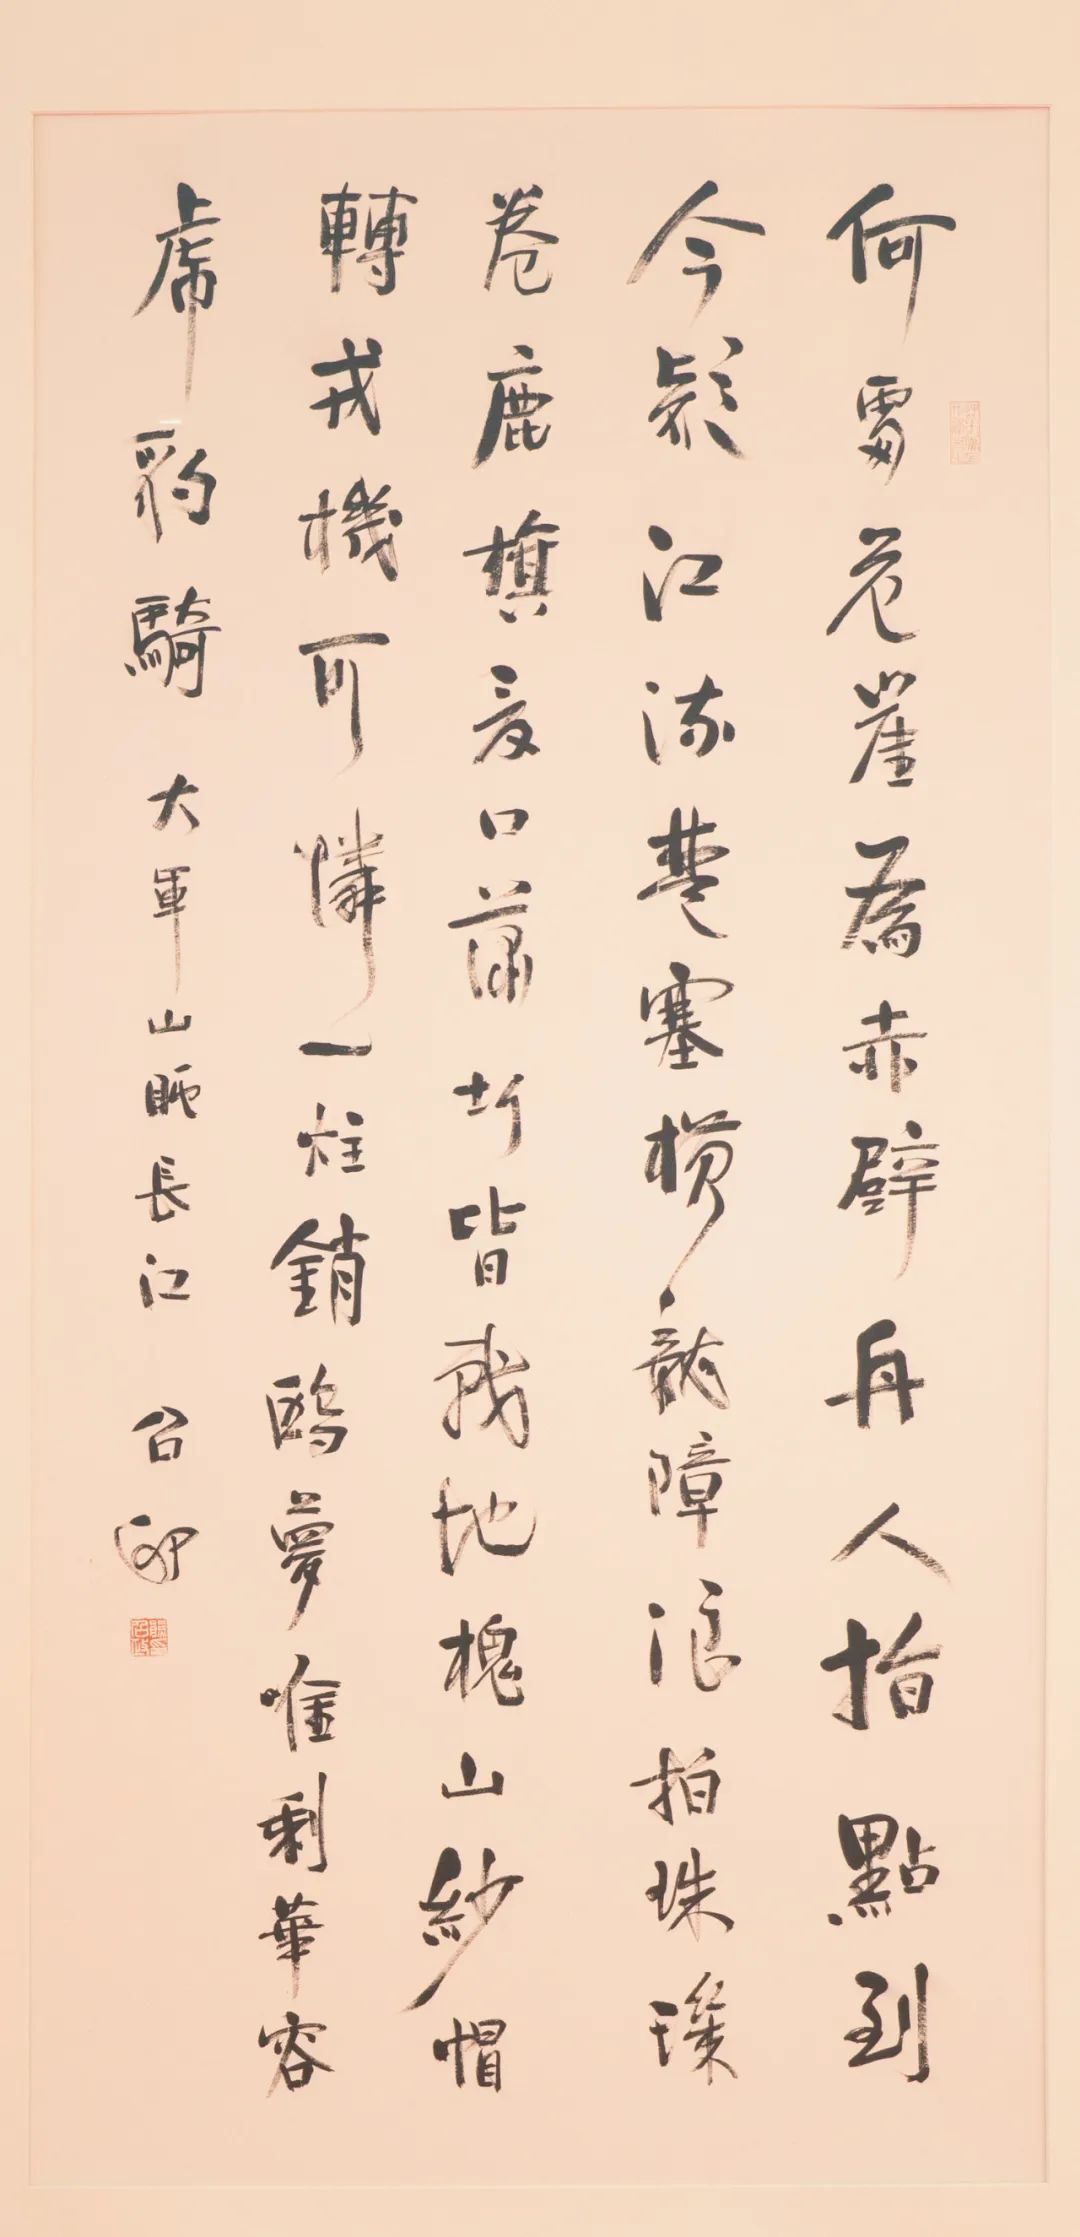 何處危崖為赤壁舟人指點到
今疑江流楚塞橫龍障浪拍珠璣
卷鹿旗夏口蒲圻皆戰地槐山紗帽
轉戎機可憐一炷銷鷗夢唯剩華容
虎豹騎 大軍山眺長江 召政